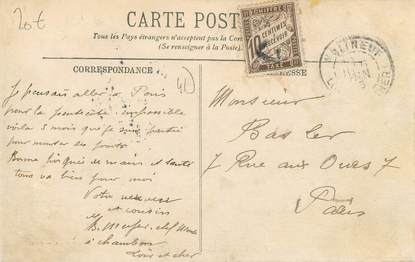 20€
CARTE POST
Tous les Pays étrangers n'acceptent pas la Cor
(Se renseigner à la Poste).
CHIFFRE
10 CENTIMES
A PERCEVOIR
TAXE
MOLINEUF
CHER
JUIN
CORRESPONDANCE
RESSE
Je pensais aller à Paris
pour la pentecôte impossible
voila 3 mois que je suis partie
pour monter des ponts
Bonne poignée de mains et santé
tous va bien pour moi
Votre neveu
et cousin
à chambon
Loir et cher
41
Monsieur
Basler
7 Rue aux Ours 7
Paris